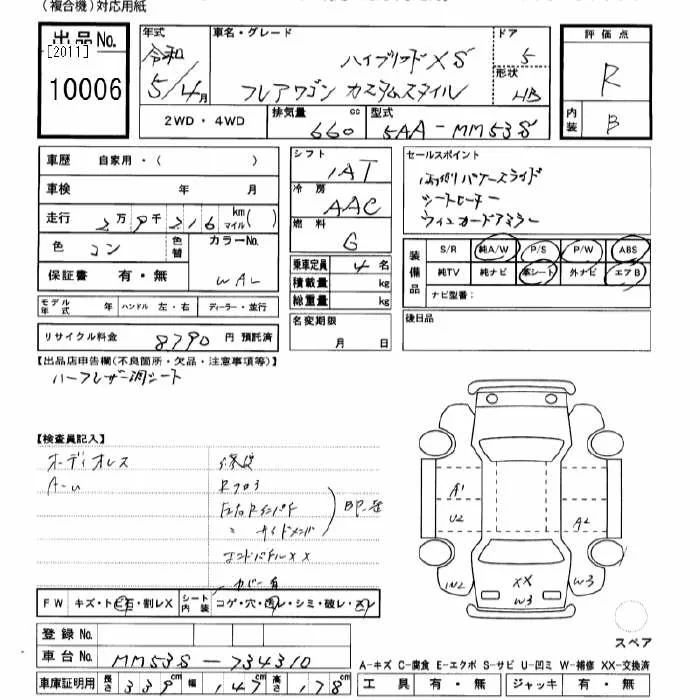 (複合機)対応用紙
出品No.
[2011]
10006
年式
令和
5/4月
車名・グレード
ハイブリッドXS
フレアワゴン カスタムスタイル
ドア
5
形状
HB
評価点
R
内装
B
2WD・4WD
排気量
cc
660
型式
5AA-MM53S
車歴 自家用・( )
車検 年 月
走行 2万9千216 km マイル( )
色 コン
色替
カラーNo.
保証書 有・無
モデル年式 年 ハンドル 左・右 ディーラー・並行
リサイクル料金 8790 円 預託済
シフト
IAT
冷房
AAC
燃料
G
乗車定員 4名
積載量 kg
総重量 kg
名変期限
月 日
セールスポイント
両側パワースライド
シートヒーター
ウィンカードアミラー
装備品
S/R 純A/W P/S P/W ABS
純TV 純ナビ 革シート 外ナビ エアB
ナビ型番:
後日品
【出品店申告欄(不良箇所・欠品・注意事項等)】
ハーフレザー調シート
【検査員記入】
オーディオレス
A-u
修復
エンドパネルXX
カバー
A1
U2
A2
W3
XX
W3
スペア
FW キズ・トビ石・割レX
シート内装 コゲ・穴・汚レ・シミ・破レ・スレ
登録No.
車台No. MM53S-734310
車庫証明用 長さ 339cm 幅 147cm 高さ 178cm
A-キズ C-腐食 E-エクボ S-サビ U-凹ミ W-補修 XX-交換済
工具 有・無 ジャッキ 有・無